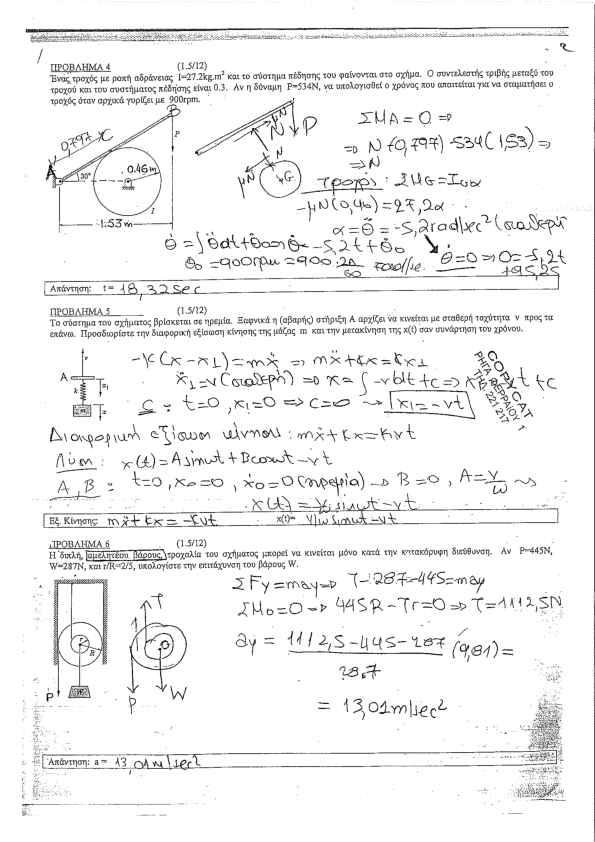 2
ΠΡΟΒΛΗΜΑ 4 (1.5/12)
Ένας τροχός με ροπή αδράνειας I=27.2kg.m² και το σύστημα πέδησης του φαίνονται στο σχήμα. Ο συντελεστής τριβής μεταξύ του
τροχού και του συστήματος πέδησης είναι 0.3. Αν η δύναμη P=534N, να υπολογισθεί ο χρόνος που απαιτείται για να σταματήσει ο
τροχός όταν αρχικά γυρίζει με 900rpm.
B
0,797
A
30°
0.46m
P
I
1.53 m
N
P
μN
N
μN
G
ΣMA = 0 ⇒
⇒ N(0,797) -534(1,53) ⇒
⇒ N
τροχός: ΣMG = Iα
-μN(0,46) = 27,2α
α = θ̈ = -5,2 rad/sec² (σταθερή)
θ̇ = ∫θ̈dt + θ̇0 ⇒ θ̇ = -5,2t + θ̇0
θ̇=0 ⇒ 0 = -5,2t + 95,25
θ̇0 = 900rpm = 900 · 2π/60 rad/sec.
Απάντηση: t = 18,32 sec
ΠΡΟΒΛΗΜΑ 5 (1.5/12)
Το σύστημα του σχήματος βρίσκεται σε ηρεμία. Ξαφνικά η (αβαρής) στήριξη Α αρχίζει να κινείται με σταθερή ταχύτητα v προς τα
επάνω. Προσδιορίστε την διαφορική εξίσωση κίνησης της μάζας m και την μετακίνηση της x(t) σαν συνάρτηση του χρόνου.
v
A
x₁
k
m
x
-K(x - x1) = mẍ ⇒ mẍ + Kx = Kx1
ẋ1 = v (σταθερή) ⇒ x = ∫ -vdt + c ⇒ x1 = -vt + c
C : t=0, x1=0 ⇒ c=0 → x1 = -vt
COPY CAT
ΡΗΓΑ ΦΕΡΡΑΙΟΥ 1
ΤΗΛ. 221 217
Διαφορική εξίσωση κίνησης: mẍ + Kx = Kvt
Λύση: x(t) = A sinωt + B cosωt - vt
A, B : t=0, x0=0, ẋ0=0 (ηρεμία) → B=0, A = v/ω ⇒
x(t) = v/ω sinωt - vt
Εξ. Κίνησης: mẍ + kx = -Kvt x(t)= v/ω sinωt - vt
ΠΡΟΒΛΗΜΑ 6 (1.5/12)
Η διπλή, αμελητέου βάρους, τροχαλία του σχήματος μπορεί να κινείται μόνο κατά την κατακόρυφη διεύθυνση. Αν P=445N,
W=287N, και r/R=2/5, υπολογίστε την επιτάχυνση του βάρους W.
r
R
P
W
T
P
W
ΣFy = may ⇒ T - 287 - 445 = may
ΣMo = 0 ⇒ 445R - Tr = 0 ⇒ T = 1112,5N
ay = 1112,5 - 445 - 287 / 28.7 (9,81) =
= 13,01 m/sec²
Απάντηση: a = 13,01 m/sec²